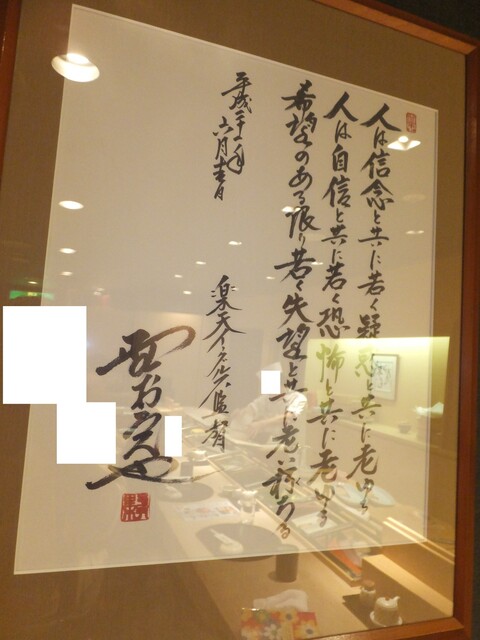 人は信念と共に若く疑惑と共に老ゆる
人は自信と共に若く恐怖と共に老ゆる
希望のある限り若く失望と共に老い朽ちる
平成二十一年
六月吉日
楽天イーグルス監督